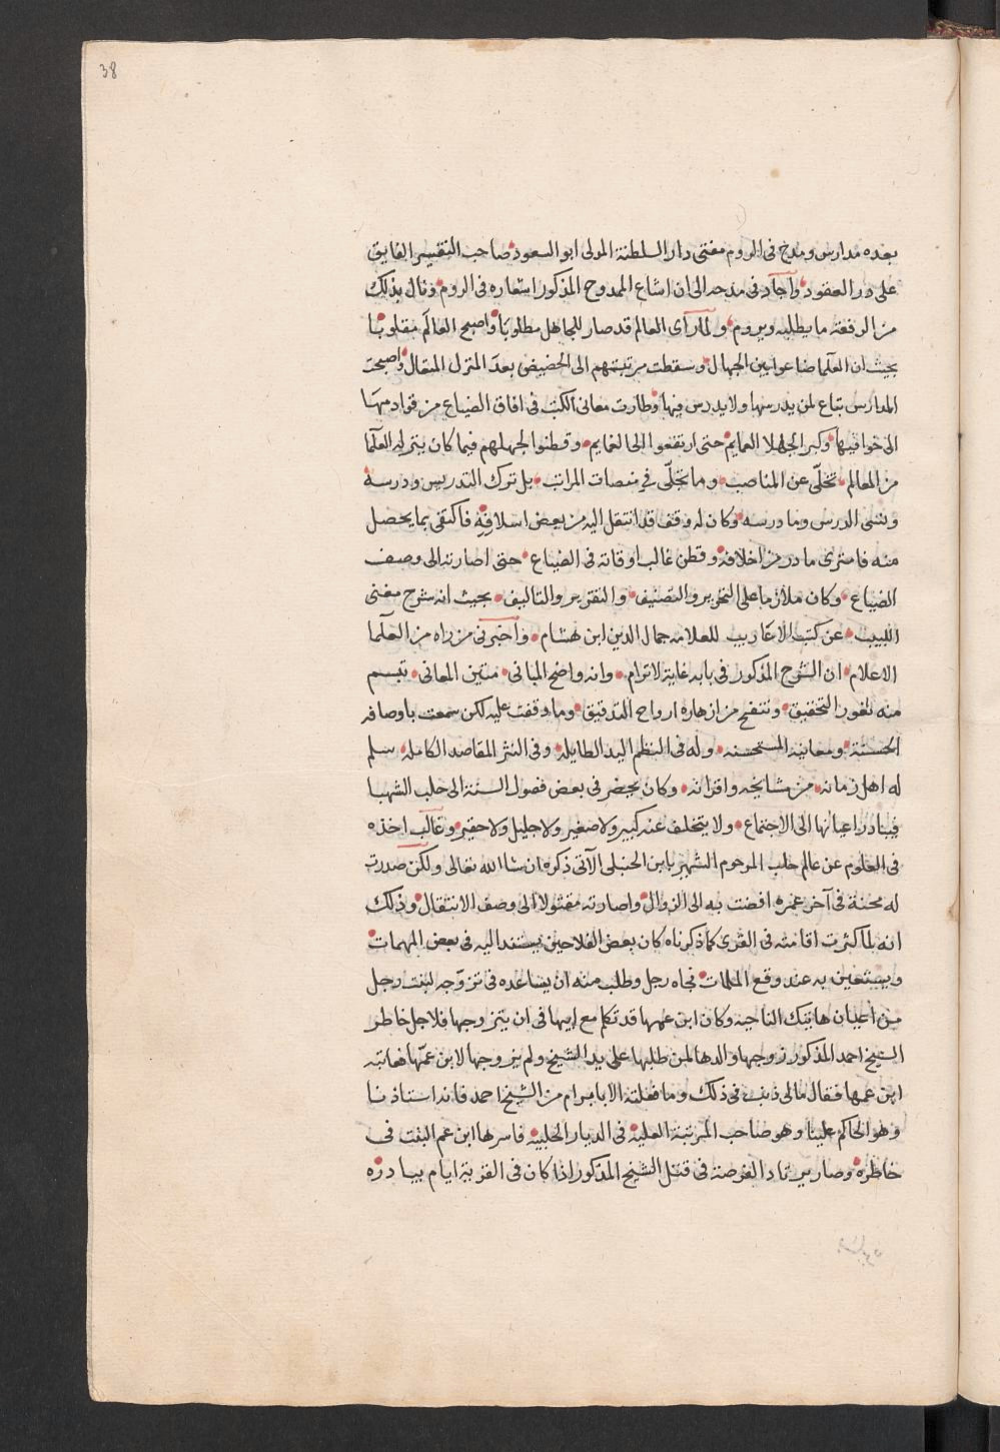 38
بعده مدارس ومدح في الروم مفتي دار السلطنة المولى ابو السعود صاحب التفسير الفايق
على در العقود واجاد في مدحه الى ان اشاع الممدوح المذكور اشعاره في الروم ونال بذلك
من الرفعة ما يطلبه ويروم ولما رأى العالم قد صار للجاهل مطلوبا واصبح العالم مقلوبا
بحيث ان العلما ضاعوا بين الجهال وسقطت مرتبتهم الى الحضيض بعد المنزل المتعال واصبحت
المدارس تباع لمن يدرسها ولا يدرس فيها وطارت معاني الكتب في افاق الضياع من قوادمها
الى خوافيها وكبر الجهلا العمايم حتى ارتفعوا الى الغمايم وفطنوا لجهلهم فيما كان يتم لهم العلما
من المعالم تخلّى عن المناصب وما تجلّى في منصات المراتب بل ترك التدريس ودرسه
ونسى الدرس وما درسه وكان له وقف قد انتقل اليه من بعض اسلافه فاكتفى بما يحصل
منه فامترى ما در من اخلافه وقطن غالب اوقاته في الضياع حتى اصارته الى وصف
الضياع وكان ملازما على التحرير والتصنيف والتقرير والتاليف بحيث انه شرح مغنى
اللبيب عن كتب الاعاريب للعلامه جمال الدين ابن هشام واخبرني من راه من العلما
الاعلام ان الشرح المذكور في بابه غاية لا ترام وانه واضح المباني متين المعاني تبسم
منه ثغور التحقيق وتنفح من ازهاره ارواح التدقيق وما وقفت عليه لكن سمعت باوصافه
الحسنة ومعانيه المستحسنه وله في النظم اليد الطايله وفي النثر المقاصد الكامله سلم
له اهل زمانه من مشايخه واقرانه وكان يحضر في بعض فصول السنة الى حلب الشهبا
فيبادر اعيانها الى الاجتماع ولا يتخلف عنه كبير ولا صغير ولا جليل ولا حقير وغالب اخذه
في العلوم عن عالم حلب المرحوم الشهير بابن الحنبلي الآتي ذكره ان شا الله تعالى ولكن صدرت
له محنة في آخر عمره افضت به الى الزوال واصارته مقتولا الى وصف الانتقال وذلك
انه لما كثرت اقامته في القرى كما ذكرناه كان بعض الفلاحين يستند اليه في بعض المهمات
ويستعين به عند وقع الملمات فجاه رجل وطلب منه ان يساعده في تزوجه لبنت رجل
من اعيان هاتيك الناحيه وكان ابن عمها قد تكلم مع ابيها في ان يتزوجها فلاجل خاطر
الشيخ احمد المذكور زوجها والدها لمن طلبها على يد الشيخ ولم يزوجها لابن عمّها فعاتبه
ابن عمها فقال مالى ذنب في ذلك وما فعلته الا بابرام من الشيخ احمد فانه استاذنا
وهو الحاكم علينا وهو صاحب المرتبة العلية في الديار الحلبية فاسرها ابن عم البنت في
خاطره وصار يرتاد الفرصة في قتل الشيخ المذكور اذا كان في القرية ايام بيادره